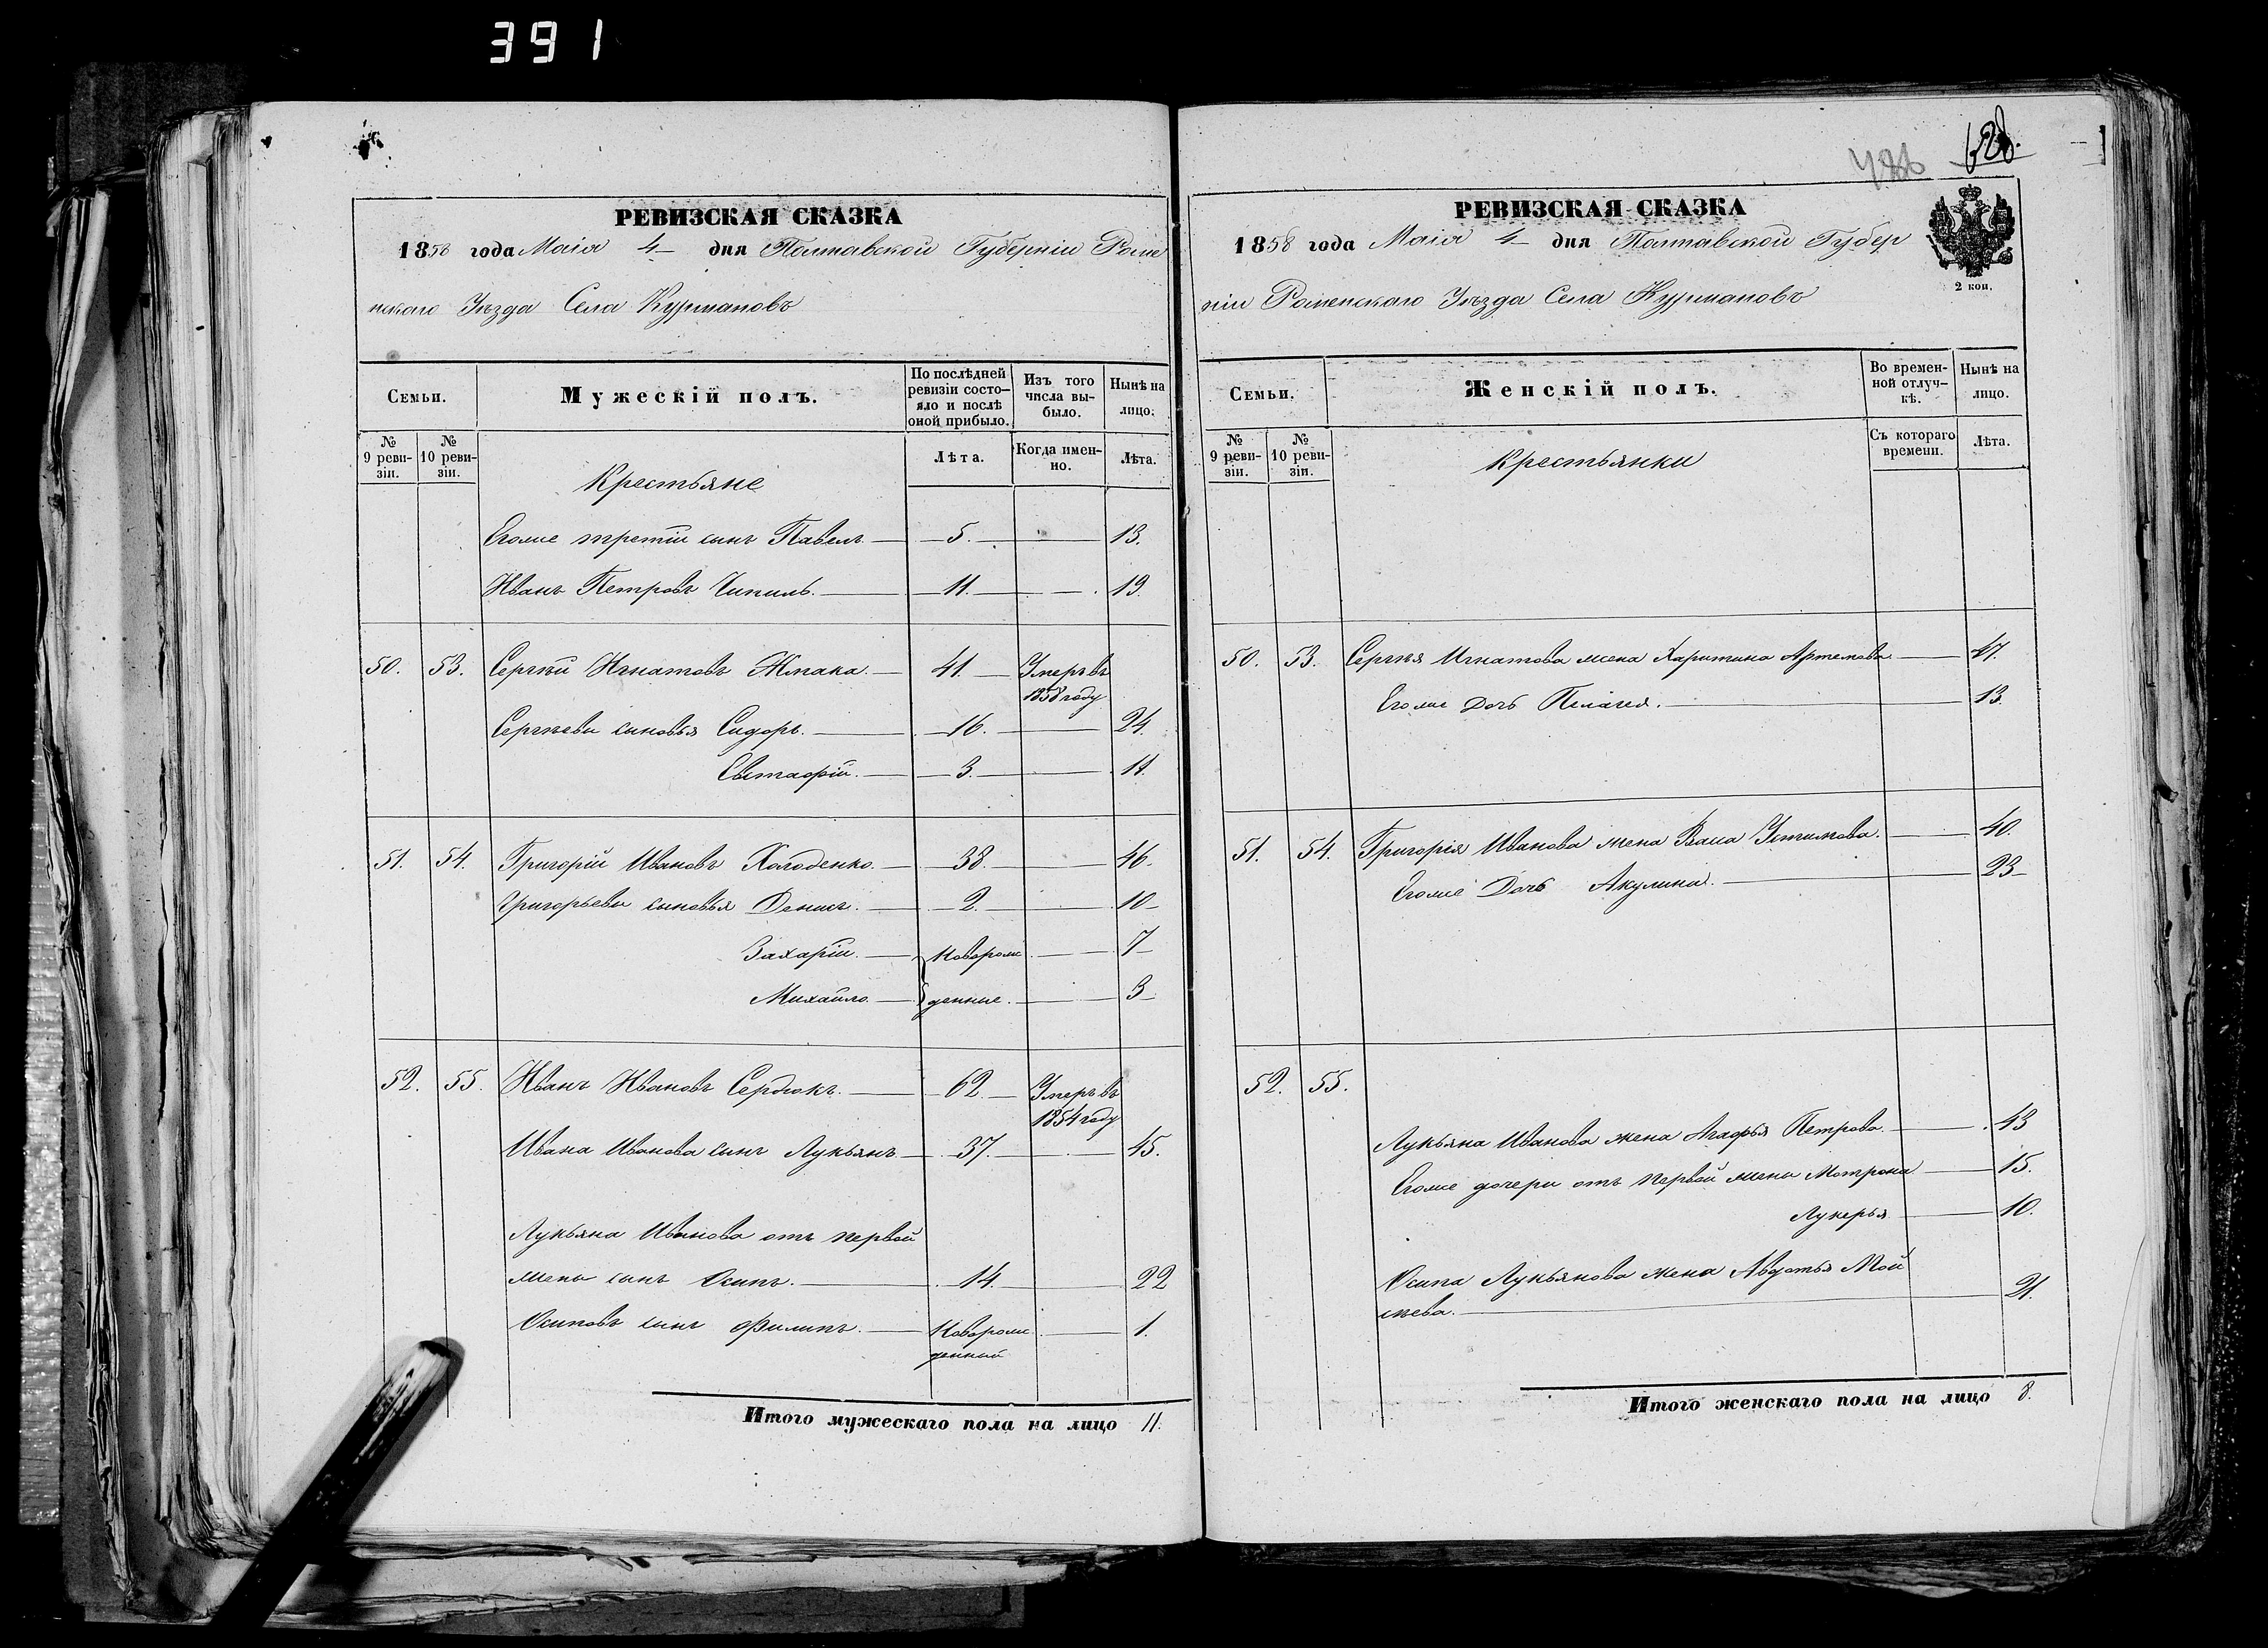 391
РЕВИЗСКАЯ СКАЗКА
1858 года Маія 4 дня Полтавской Губерніи Роме
нскаго Уѣзда Села Курмановъ
Семьи.
Мужескій полъ.
По послѣдней ревизіи состо-
яло и послѣ оной прибыло.
Изъ того числа вы-
было.
Нынѣ на лицо.
№ 9 реви-
зіи.
№ 10 реви-
зіи.
Лѣта.
Когда имен-
но.
Лѣта.
Крестьяне
Егоже третій сынъ Павелъ 5. 13.
Иванъ Петровъ Чипиль. 11. 19.
50. 53. Сергѣй Игнатовъ Жмака 41. Умеръ въ
1858 году
Сергѣевы сыновья Сидоръ. 16. 24.
Евстафій. 3. 11.
51. 54. Григорій Ивановъ Холоденко. 38. 46.
Григорьевы сыновья Денисъ. 2. 10
Захарій. новорож 7
Михайло. денные. 3
52. 55. Иванъ Ивановъ Сердюкъ. 62. Умеръ въ
1854 году
Ивана Иванова сынъ Лукьянъ 37. 45.
Лукьяна Иванова отъ первой
жены сынъ Осипъ. 14. 22
Осиповъ сынъ Филипъ. Новорож 1.
денный
Итого мужескаго пола на лицо 11.
628.
РЕВИЗСКАЯ СКАЗКА
1858 года Маія 4 дня Полтавской Губер
2 коп.
ніи Роменскаго Уѣзда Села Курмановъ
Семьи.
Женскій полъ.
Во времен-
ной отлуч-
кѣ.
Нынѣ на лицо.
№ 9 реви-
зіи.
№ 10 реви-
зіи.
Съ котораго времени.
Лѣта.
Крестьянки
50. 53. Сергѣя Игнатова жена Харитина Артемова 47.
Егоже дочь Пелагея. 13.
51. 54. Григорія Иванова жена Васа Устимова. 40.
Егоже Дочь Акулина. 23
52. 55.
Лукьяна Иванова жена Агафья Петрова. 43
Егоже дочери отъ первой жены Мотрона 15.
Лукерья 10.
Осипа Лукьянова жена Авдотья Мой
сѣева. 21.
Итого женскаго пола на лицо 8.